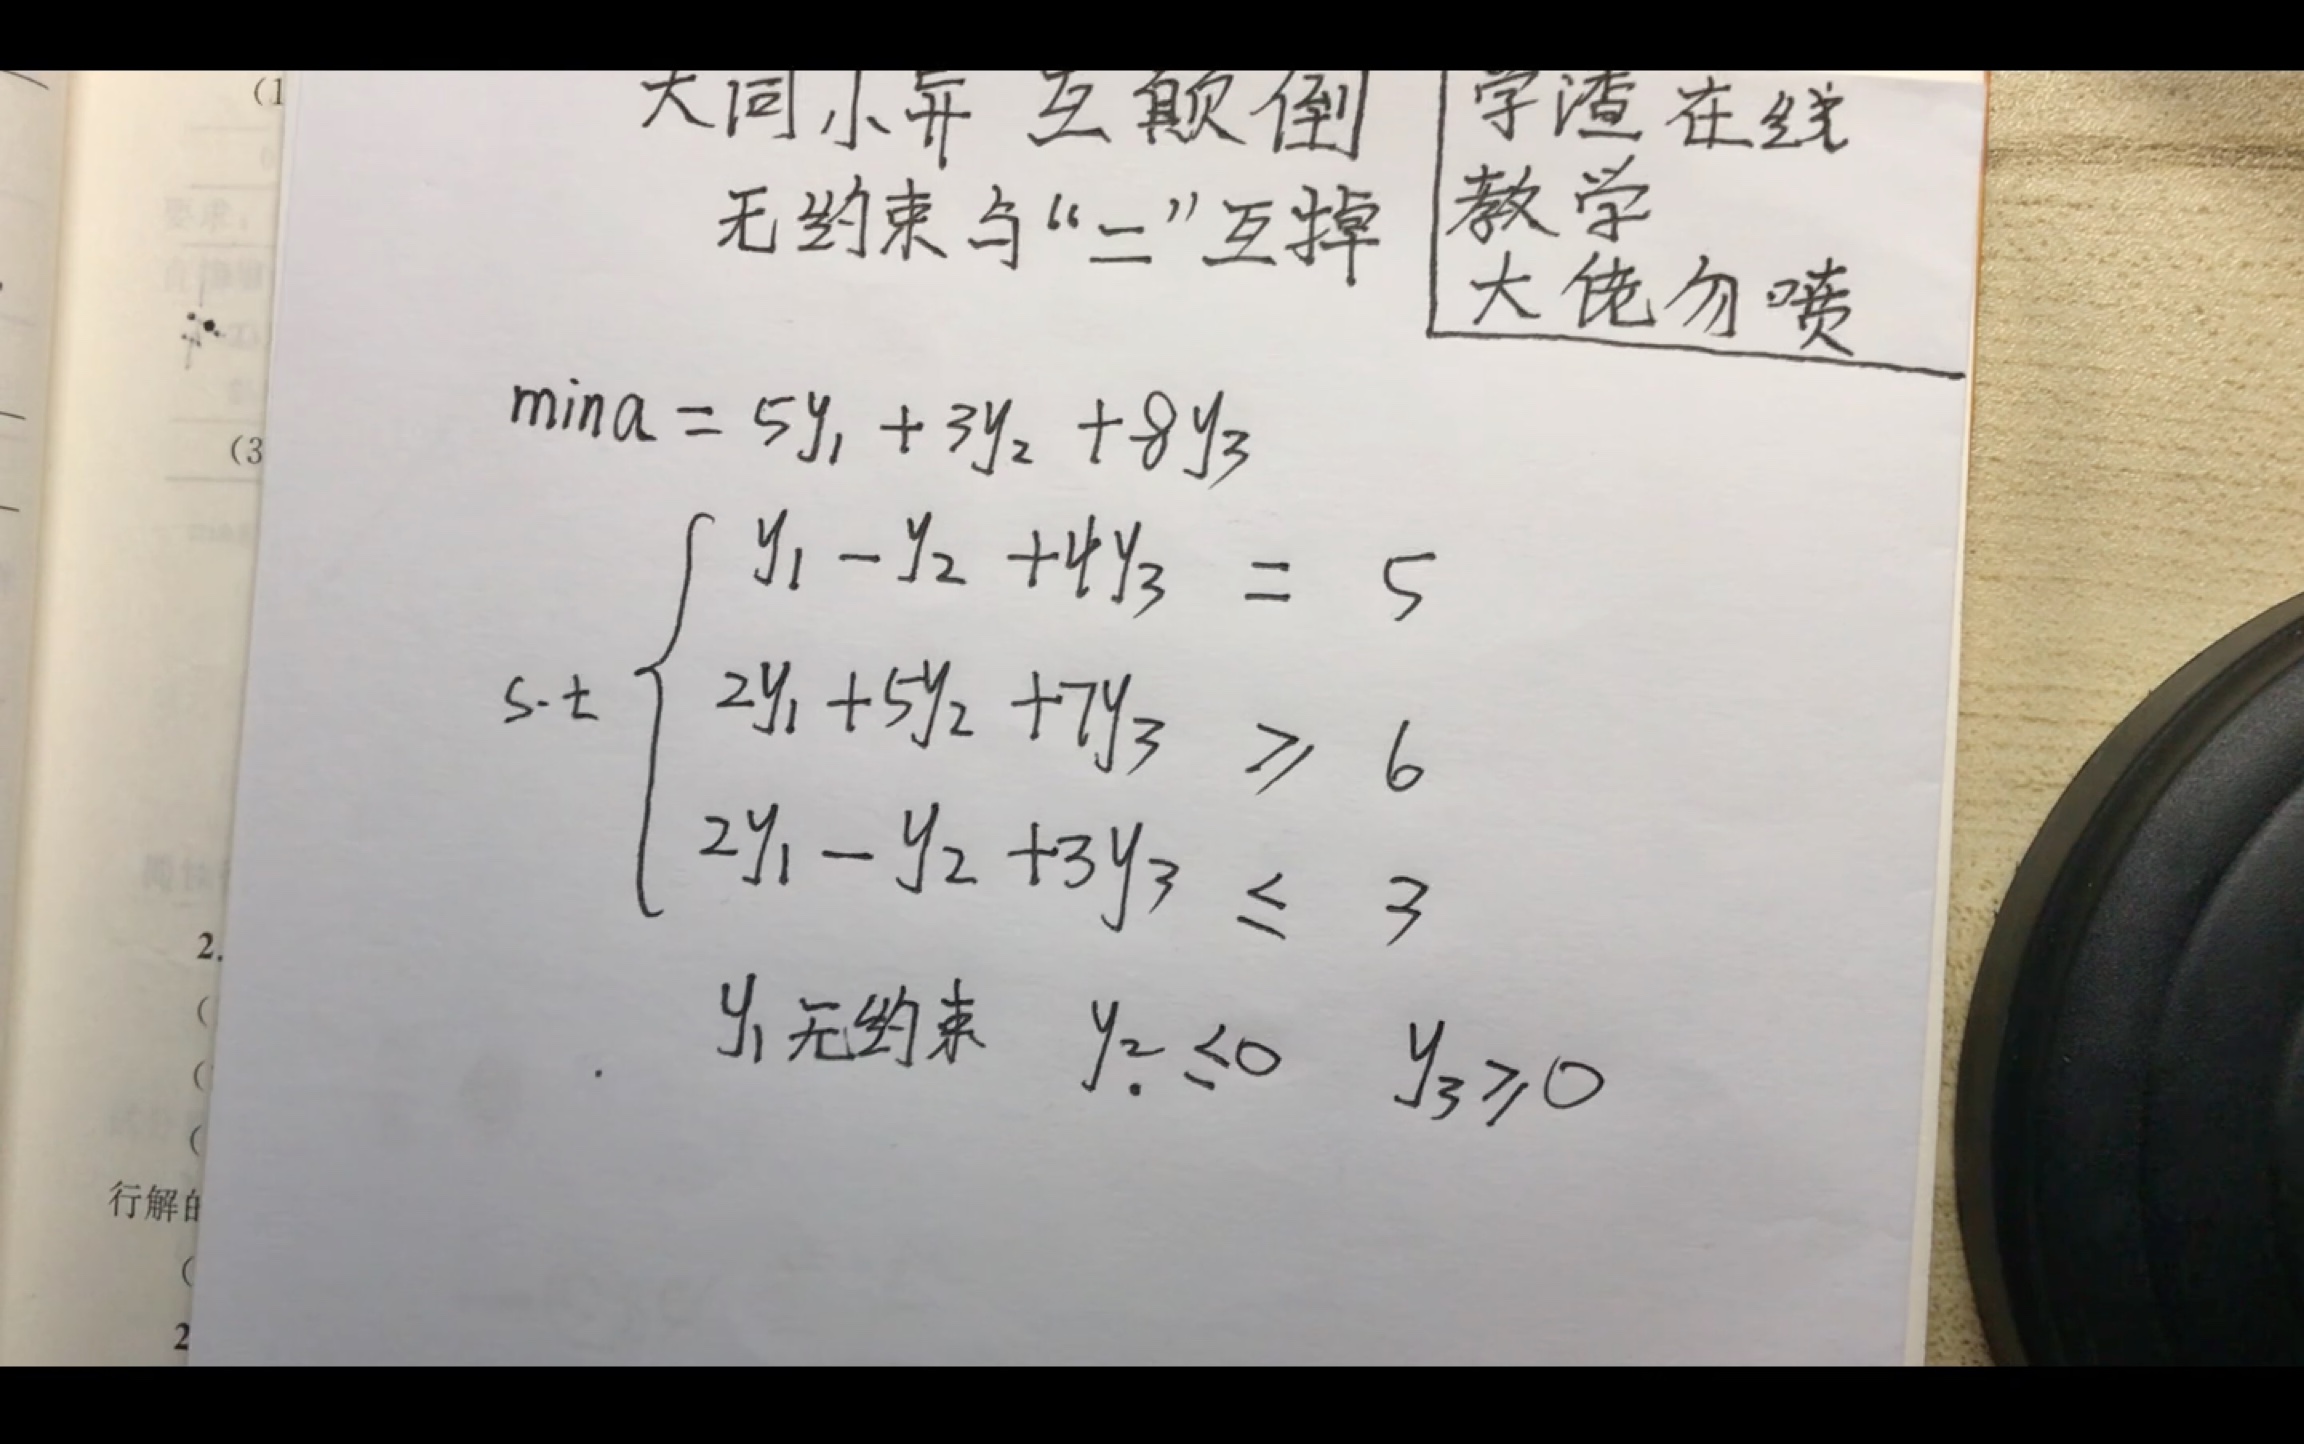 大同小异 互颠倒
无约束与“=”互掉
学渣在线
教学
大佬勿喷
min a = 5y₁ + 3y₂ + 8y₃
s.t
y₁ - y₂ + 4y₃ = 5
2y₁ + 5y₂ + 7y₃ ≥ 6
2y₁ - y₂ + 3y₃ ≤ 3
y₁ 无约束 y₂ ≤ 0 y₃ ≥ 0
(1
(3
2.
行解的
2